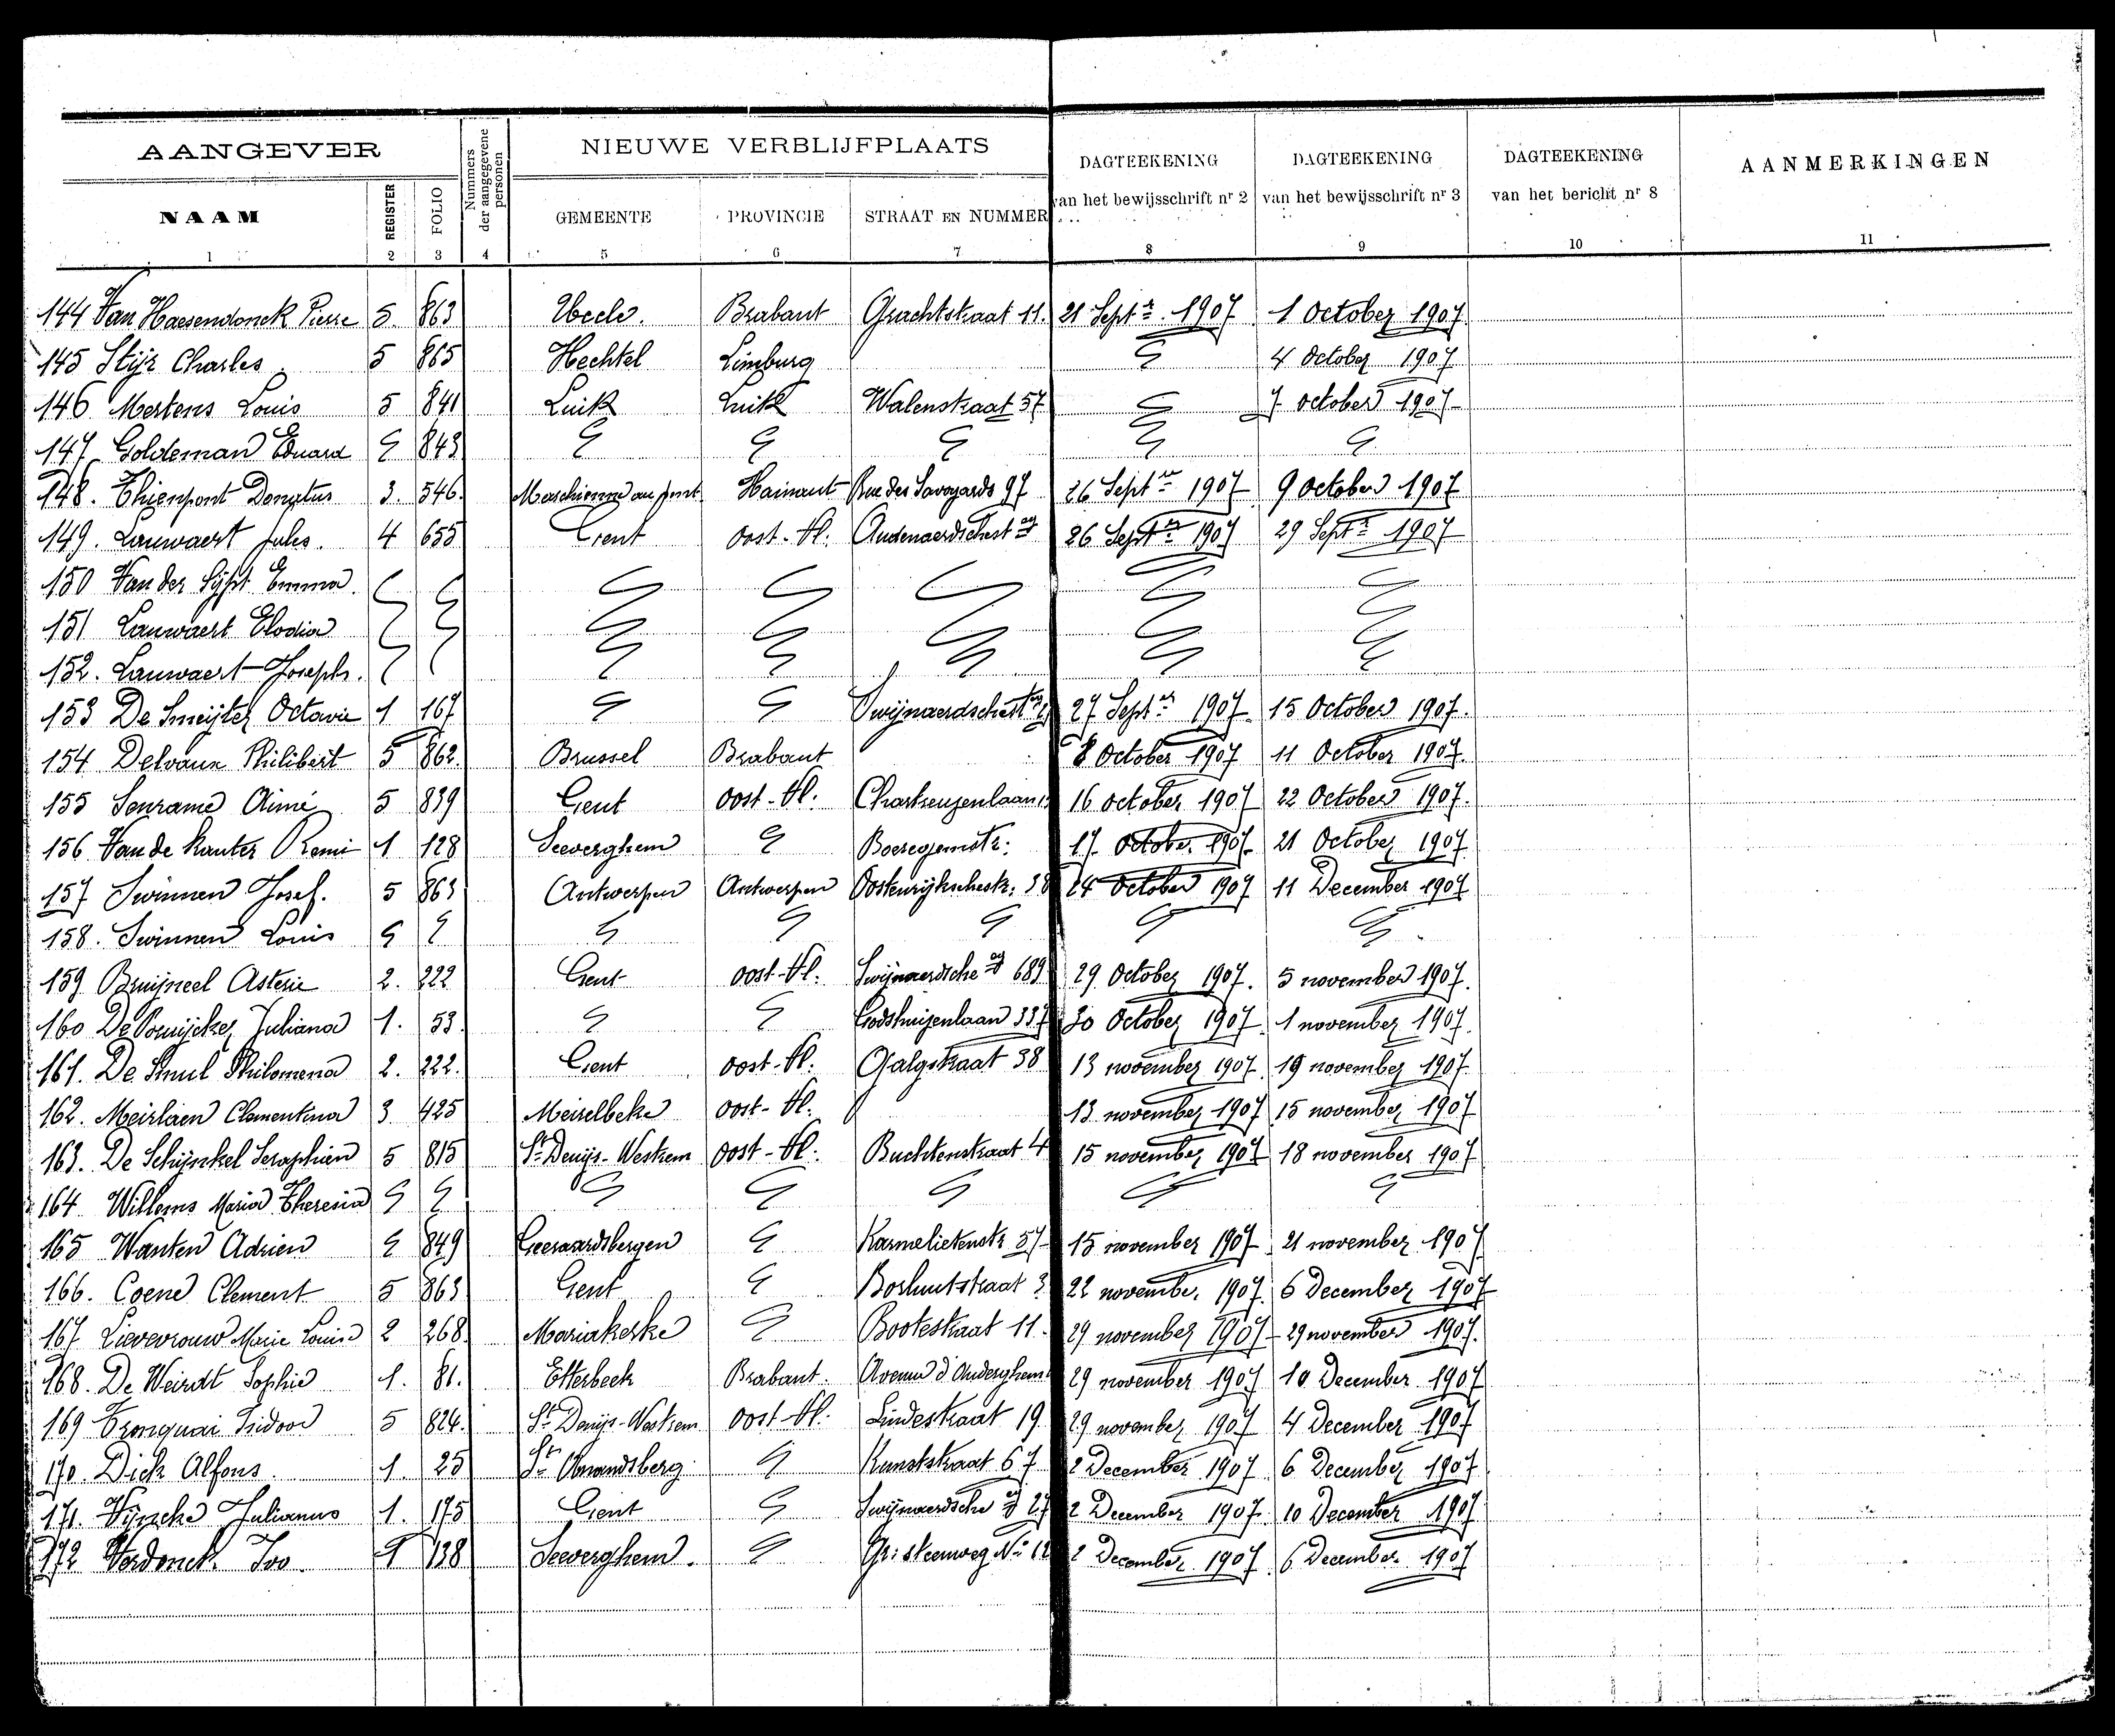 AANGEVER
Nummers der aangegevene personen
NIEUWE VERBLIJFPLAATS
DAGTEEKENING van het bewijsschrift nr 2
DAGTEEKENING van het bewijsschrift nr 3
DAGTEEKENING van het bericht nr 8
AANMERKINGEN
NAAM REGISTER FOLIO GEMEENTE PROVINCIE STRAAT EN NUMMER
1 2 3 4 5 6 7 8 9 10 11
144 Van Haesendonck Pierre 5. 863 Uccle. Brabant Grachtstraat 11. 21 Septr. 1907 1 October 1907
145 Stijr Charles 5 865 Hechtel Limburg 4 October 1907
146 Mertens Louis 5 841 Luik Luik Walenstraat 57 7 october 1907
147 Goldeman Eduard 843
148. Thienpont Donatus 3. 546. Marchienne au pont Hainaut Rue des Savoyards 97 26 Septer 1907 9 october 1907
149. Lauwaert Jules. 4 655 Gent Oost-Vl. Audenaerdschest 26 Septer 1907 29 Septr 1907
150 Van der Sijpt Emma.
151 Lauwaert Elodia
152. Lauwaert Joseph.
153 De Smeijter Octavie 1 167 Swijnaerdschest 27 Septer 1907 15 October 1907.
154 Delvaux Philibert 5 862. Brussel Brabant 8 October 1907 11 October 1907.
155 Senrame Aimé 5 839 Gent Oost-Vl. Chartreuzenlaan 16 october 1907 22 October 1907.
156 Van de Kauter Remi 1 128 Seeverghem 17 October 1907 21 October 1907
157 Swinnen Josef. 5 863 Antwerpen Antwerpen Oostenrijkschestr. 38 24 October 1907 11 December 1907
158. Swinnen Louis
159 Bruijneel Asterie 2. 222 Gent Oost-Vl. Swijnaerdsche 689 29 October 1907. 5 november 1907.
160 De Pouijcker Juliana 1. 53. Godshuizenlaan 337 30 October 1907 1 november 1907.
161. De Smul Philomena 2. 222. Gent Oost-Vl. Galgstraat 38 13 november 1907 19 november 1907
162. Meirlaen Clementina 3 425 Meirelbeke Oost-Vl. 13 november 1907 15 november 1907
163. De Schijnkel Seraphien 5 815 St Denijs-Westrem Oost-Vl. Buchtenstraat 4 15 november 1907 18 november 1907
164 Willems Maria Theresia
165 Wanten Adrien 849 Geeraardsbergen Karmelietenstr 57 15 november 1907 21 november 1907
166. Coene Clement 5 863 Gent Borluutstraat 3 22 november 1907 6 December 1907
167 Lievevrouw Marie Louise 2 268. Mariakerke Bootestraat 11. 29 november 1907 29 november 1907.
168. De Weirdt Sophie 1. 81. Etterbeek Brabant. Avenue d'Auderghem 29 november 1907 10 December 1907
169 Tronquai Isidoor 5 824. St Denijs-Westrem Oost-Vl. Lindestraat 19 29 november 1907 4 December 1907
170. Dick Alfons. 1. 25 St Amandsberg Kunststraat 67 2 December 1907 6 December 1907
171. Vijncke Julianus 1. 175 Gent Swijnaerdsche 27 2 December 1907. 10 December 1907
172 Verdonck Ivo 1 138 Seeverghem. Gr: steenweg No 12 2 December 1907 6 December 1907